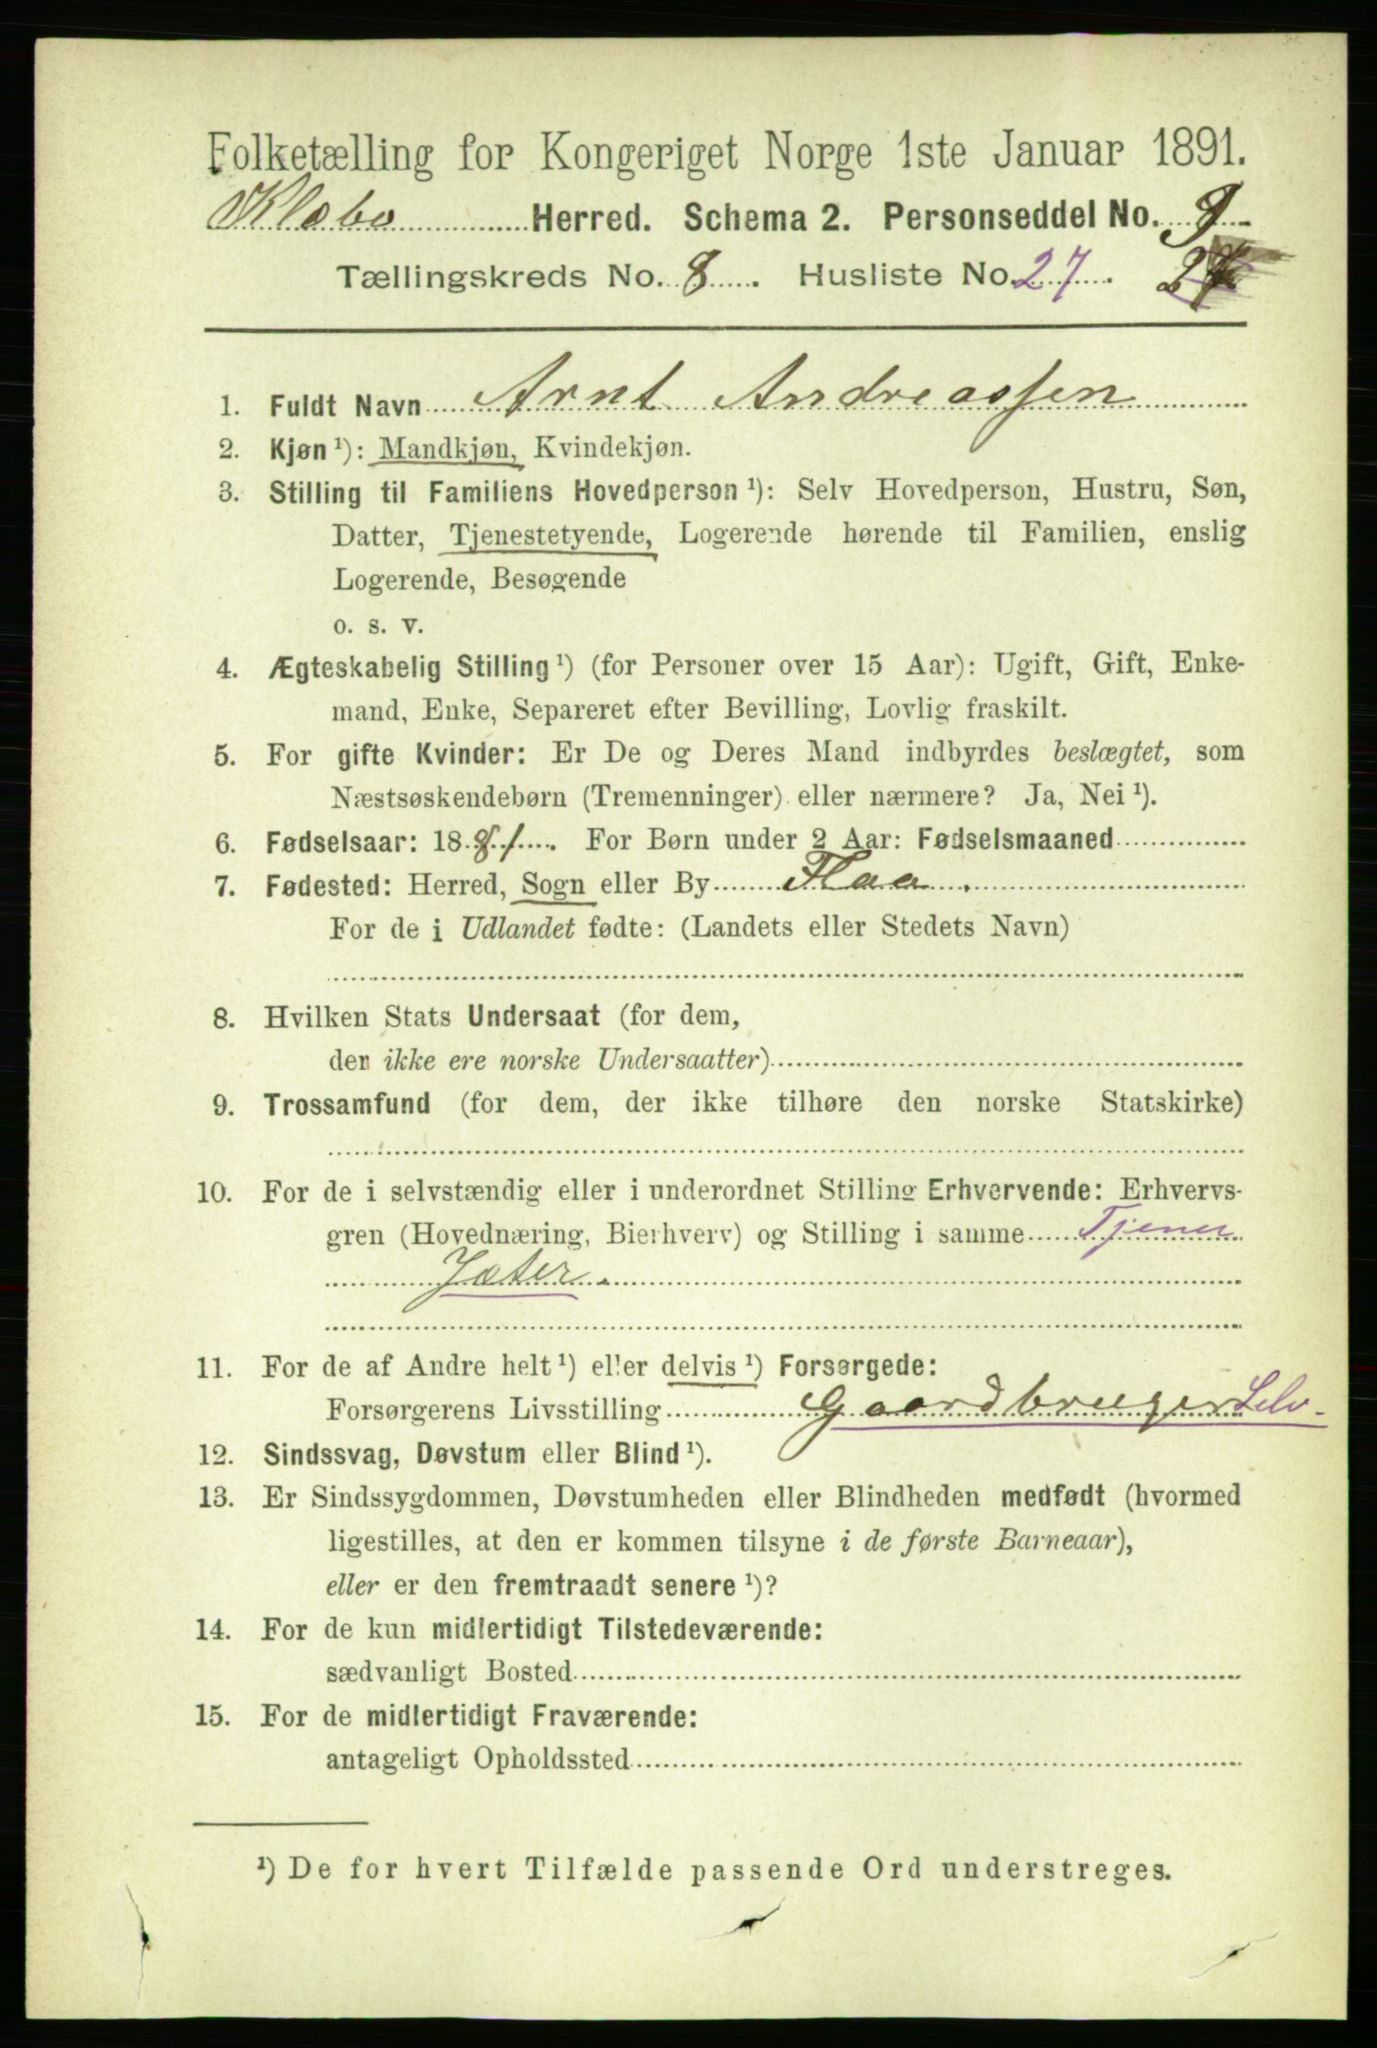 Folketælling for Kongeriget Norge 1ste Januar 1891.
Klæbo Herred. Schema 2. Personseddel No. 9
Tællingskreds No. 8. Husliste No. 27.
1. Fuldt Navn Arnt Andreassen
2. Kjøn ¹): Mandkjøn, Kvindekjøn.
3. Stilling til Familiens Hovedperson ¹): Selv Hovedperson, Hustru, Søn,
Datter, Tjenestetyende, Logerende hørende til Familien, enslig
Logerende, Besøgende
o. s. v.
4. Ægteskabelig Stilling ¹) (for Personer over 15 Aar): Ugift, Gift, Enke-
mand, Enke, Separeret efter Bevilling, Lovlig fraskilt.
5. For gifte Kvinder: Er De og Deres Mand indbyrdes beslægtet, som
Næstsøskendebørn (Tremenninger) eller nærmere? Ja, Nei ¹).
6. Fødselsaar: 1881. For Børn under 2 Aar: Fødselsmaaned
7. Fødested: Herred, Sogn eller By Flaa.
For de i Udlandet fødte: (Landets eller Stedets Navn)
8. Hvilken Stats Undersaat (for dem,
der ikke ere norske Undersaatter)
9. Trossamfund (for dem, der ikke tilhøre den norske Statskirke)
10. For de i selvstændig eller i underordnet Stilling Erhvervende: Erhvervs-
gren (Hovednæring, Bierhverv) og Stilling i samme Tjener
Jæter.
11. For de af Andre helt ¹) eller delvis ¹) Forsørgede:
Forsørgerens Livsstilling Gaardbruger Selv.
12. Sindssvag, Døvstum eller Blind ¹).
13. Er Sindssygdommen, Døvstumheden eller Blindheden medfødt (hvormed
ligestilles, at den er kommen tilsyne i de første Barneaar),
eller er den fremtraadt senere ¹)?
14. For de kun midlertidigt Tilstedeværende:
sædvanligt Bosted
15. For de midlertidigt Fraværende:
antageligt Opholdssted
¹) De for hvert Tilfælde passende Ord understreges.